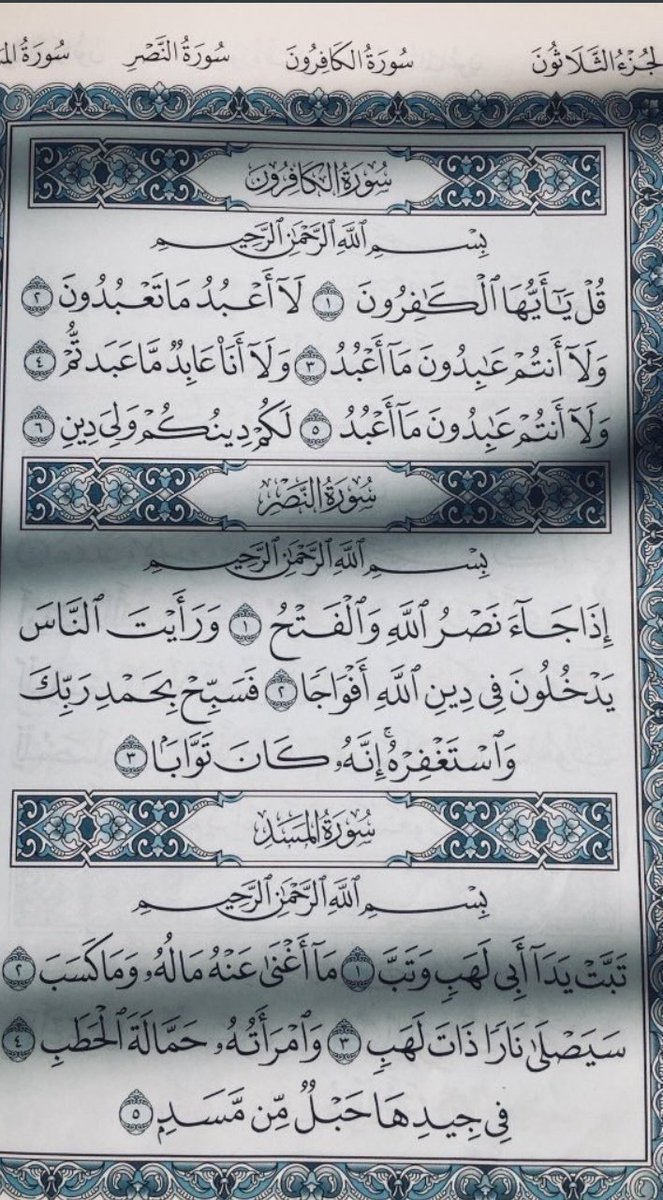 الجُزْءُ الثَّلَاثُونَ سُورَةُ الكَافِرُونَ سُورَةُ النَّصْرِ سُورَةُ
سُورَةُ الكَافِرُونَ
بِسْمِ ٱللَّهِ ٱلرَّحْمَٰنِ ٱلرَّحِيمِ
قُلْ يَٰٓأَيُّهَا ٱلْكَٰفِرُونَ ١ لَآ أَعْبُدُ مَا تَعْبُدُونَ ٢
وَلَآ أَنتُمْ عَٰبِدُونَ مَآ أَعْبُدُ ٣ وَلَآ أَنَا۠ عَابِدٌ مَّا عَبَدتُّمْ ٤
وَلَآ أَنتُمْ عَٰبِدُونَ مَآ أَعْبُدُ ٥ لَكُمْ دِينُكُمْ وَلِىَ دِينِ ٦
سُورَةُ النَّصْرِ
بِسْمِ ٱللَّهِ ٱلرَّحْمَٰنِ ٱلرَّحِيمِ
إِذَا جَآءَ نَصْرُ ٱللَّهِ وَٱلْفَتْحُ ١ وَرَأَيْتَ ٱلنَّاسَ
يَدْخُلُونَ فِى دِينِ ٱللَّهِ أَفْوَاجًا ٢ فَسَبِّحْ بِحَمْدِ رَبِّكَ
وَٱسْتَغْفِرْهُۚ إِنَّهُۥ كَانَ تَوَّابًۢا ٣
سُورَةُ المَسَدِ
بِسْمِ ٱللَّهِ ٱلرَّحْمَٰنِ ٱلرَّحِيمِ
تَبَّتْ يَدَآ أَبِى لَهَبٍ وَتَبَّ ١ مَآ أَغْنَىٰ عَنْهُ مَالُهُۥ وَمَا كَسَبَ ٢
سَيَصْلَىٰ نَارًا ذَاتَ لَهَبٍ ٣ وَٱمْرَأَتُهُۥ حَمَّالَةَ ٱلْحَطَبِ ٤
فِى جِيدِهَا حَبْلٌ مِّن مَّسَدٍۭ ٥